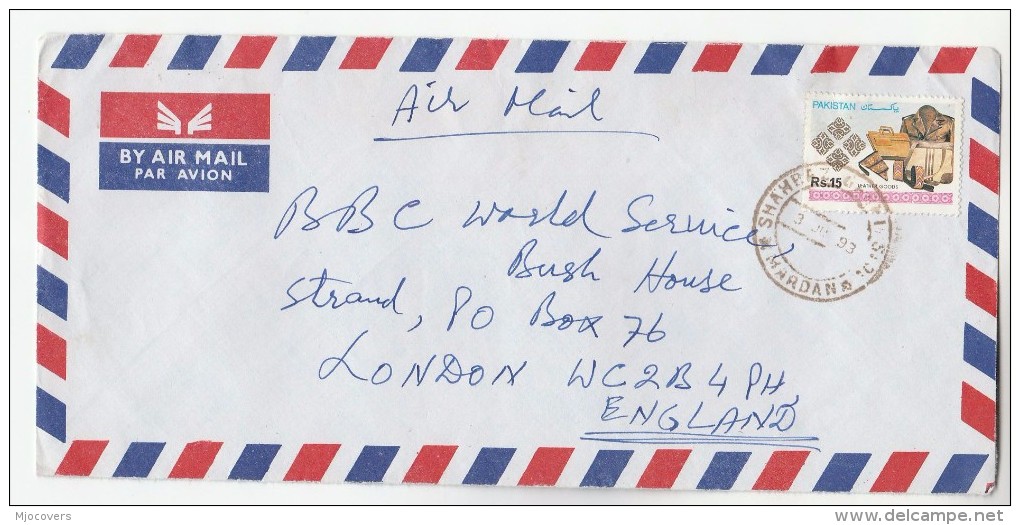 Air Mail
BY AIR MAIL
PAR AVION
PAKISTAN پاکستان
Rs.15
LEATHER GOODS
MARDAN
93
BBC World Service,
Bush House
Strand, PO Box 76
LONDON WC2B 4PH
ENGLAND
Mjcovers
delcampe.net